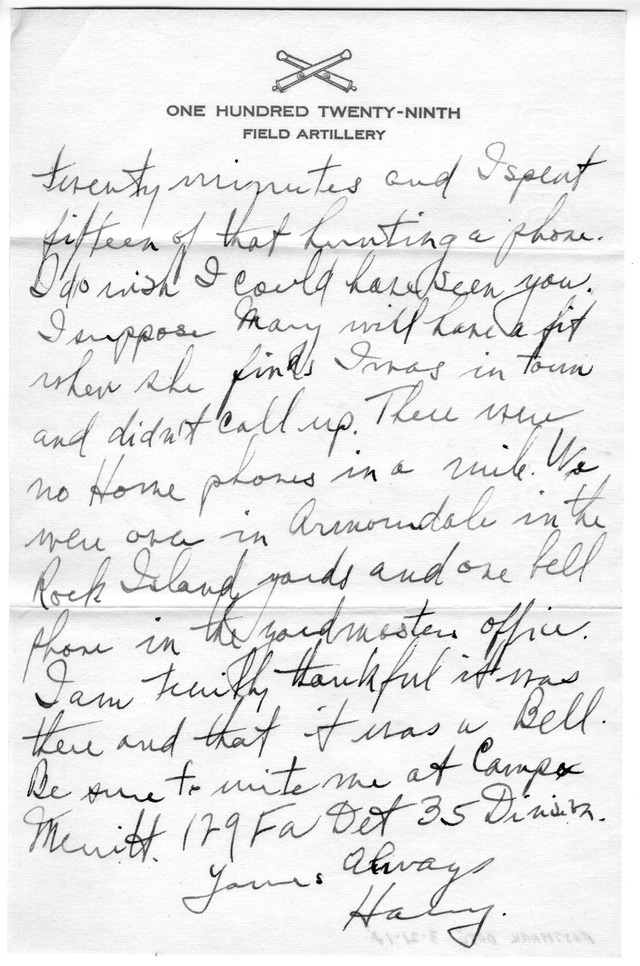 ONE HUNDRED TWENTY-NINTH
FIELD ARTILLERY
twenty minutes and I spent
fifteen of that hunting a phone.
I do wish I could have seen you.
I suppose Mary will have a fit
when she finds I was in town
and didn't call up. There were
no Home phones in a mile. We
were over in Armourdale in the
Rock Island yards and one bell
phone in the yardmasters office.
I am terribly thankful it was
there and that it was a Bell.
Be sure to write me at Camp
Merritt. 129 Fa Det 35 Division.
Yours Always
Harry.
POSTMARK DATE 3-21-18